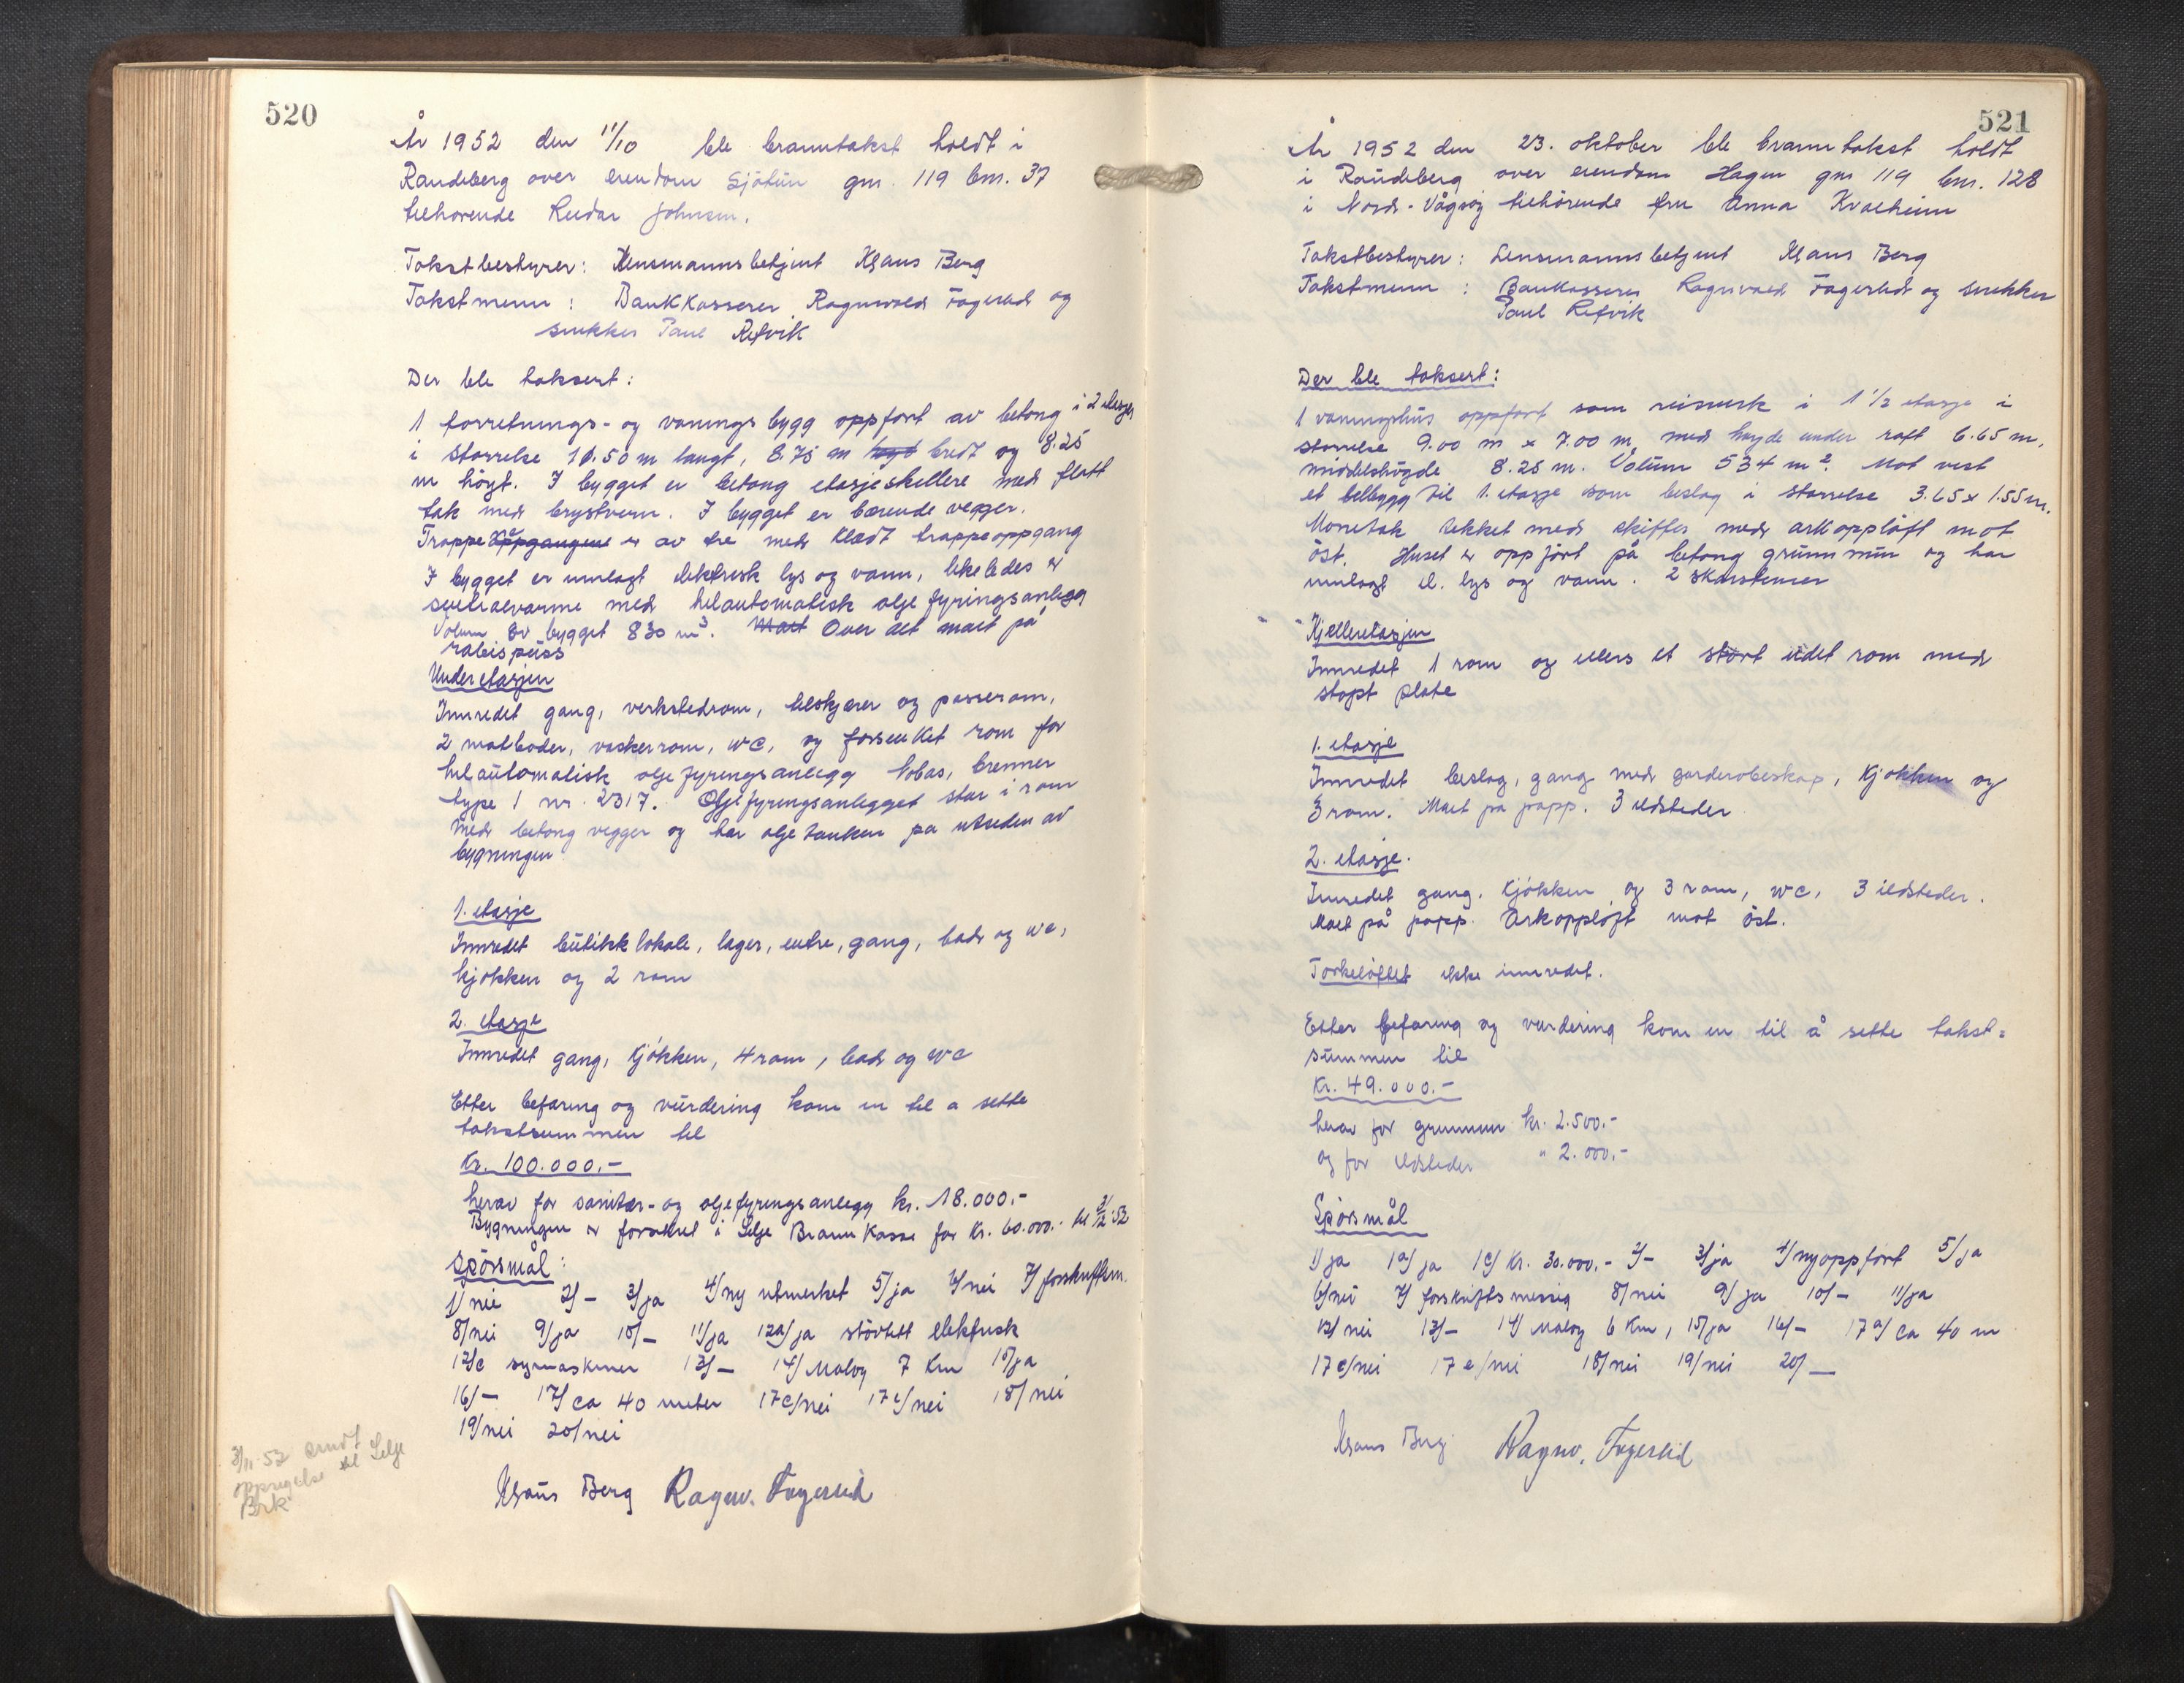 520
År 1952 den 11/10 ble branntakst holdt i
Raudeberg over eiendom Sjøtun gnr. 119 bnr. 37
tilhørende Reidar Johnsen.
Takstbestyrer: Lensmannsbetjent Klaus Berg
Takstmenn : Bankkasserer Ragnvald Fagerlid og
snekker Paul Refvik
Der ble taksert:
1 forretnings- og vånings bygg oppført av betong i 2 etasjer
i størrelse 11.50 m langt, 8.75 m høgt bredt og 8.25
m høgt. I bygget er betong etasjeskillere med flatt
tak med brystvern. I bygget er bærende vegger.
Trappe oppgangene er av tre med kledt trappeoppgang
I bygget er innlagt elektrisk lys og vann, likeledes er
sentralvarme med helautomatisk olje fyringsanlegg
Volum av bygget 830 m³. Malt Over alt malt på
rabispuss
Underetasjen
Innredet gang, verkstedrom, tilskjærer og passerom,
2 matboder, vaskerrom, WC, og forsenket rom for
helautomatisk olje fyringsanlegg Nobas, brenner
type 1 nr. 2317. Oljefyringsanlegget står i rom
med betong vegger og har olje tanken på utsiden av
bygningen
1. etasje
Innredet butikk lokale, lager, entre, gang, bad og wc,
kjøkken og 2 rom
2. etasje
Innredet gang, kjøkken, 4 rom, bad og WC
Etter befaring og vurdering kom en til å sette
takstsummen til
Kr. 100.000.-
herav for sanitær- og oljefyringsanlegg kr. 18.000.-
Bygningen er forsikret i Selje Brann Kasse for kr. 60.000.- til
Spørsmål:
1/ nei 2/- 3/ja 4/ny utmerket 5/ja 6/nei 7/ forskriftsm.
8/nei 9/ja 10/- 11/ja 12a/ja støvtett elektrisk
12/c symaskiner 13/- 14/ Måløy 7 km 15/ja
16/- 17/ ca 40 meter 17c/nei 17e/nei 18/nei
19/nei 20/nei
3/11-52 sendt
oppsigelse til Selje
Brk
Klaus Berg Ragnv. Fagerlid
521
År 1952 den 23. oktober ble branntakst holdt
i Raudeberg over eiendom Hagen gnr 119 bnr. 128
i Nord-Vågsøy tilhørende fru Anna Kvalheim
Takstbestyrer: Lensmannsbetjent Klaus Berg
Takstmenn : Bankkasserer Ragnvald Fagerlid og snekker
Paul Refvik
Der ble taksert:
1 våningshus oppført som reisverk i 1 1/2 etasje i
størrelse 9.00 m x 7.00 m, med høyde under raft 6.65 m,
middelshøgde 8.25 m. Volum 534 m². Mot vest
et tilbygg til 1. etasje som beslag i størrelse 3.65 x 1.55 m.
Mønetak tekket med skiffer med arkoppløft mot
øst. Huset er oppført på betong grunnmur og har
innlagt el. lys og vann. 2 skorsteiner
Kjelleretasjen
Innredet 1 rom og ellers et stort udelt rom med
støpt plate
1. etasje
Innredet beslag, gang med garderobeskap, kjøkken og
3 rom. Malt på papp. 3 ildsteder
2. etasje.
Innredet gang, kjøkken og 3 rom, WC, 3 ildsteder.
Malt på papp. Arkoppløft mot øst.
Tørkeloftet ikke innredet.
Etter befaring og vurdering kom en til å sette takst=
summen til
Kr. 49.000.-
herav for grunnmur kr. 2.500.-
og for ildsteder " 2.000.-
Spørsmål
1/ja 1a/ja 1c/ kr. 30.000.- 2/- 3/ja 4/nyoppført 5/ja
6/nei 7/ forskriftsmessig 8/nei 9/ja 10/- 11/ja
12/nei 13/- 14/ Måløy 6 km, 15/ja 16/- 17a/ ca 40 m
17c/nei 17e/nei 18/nei 19/nei 20/-
Klaus Berg Ragnv. Fagerlid